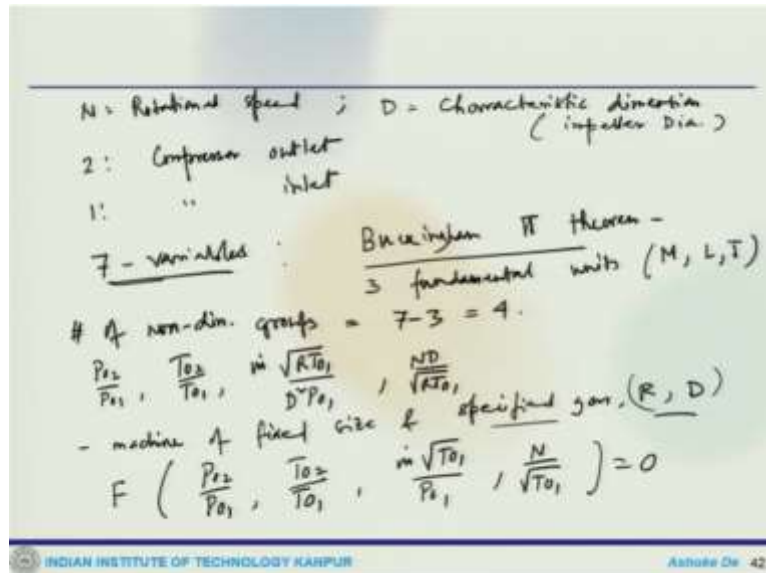 N = Rotational speed ; D = Characteristic dimention
( impeller Dia. )
2 : Compressor outlet
1: " inlet
7 - variables : Buckingham π theorem -
3 fundamental units (M, L, T)
# of non-dim. groups = 7-3 = 4.
P02/P01 , T02/T01 , ṁ√RT01/D²P01 , ND/√RT01
- machine of fixed size & specified gas, (R, D)
F ( P02/P01 , T02/T01 , ṁ√T01/P01 , N/√T01 ) = 0
INDIAN INSTITUTE OF TECHNOLOGY KANPUR Ashoke De 42